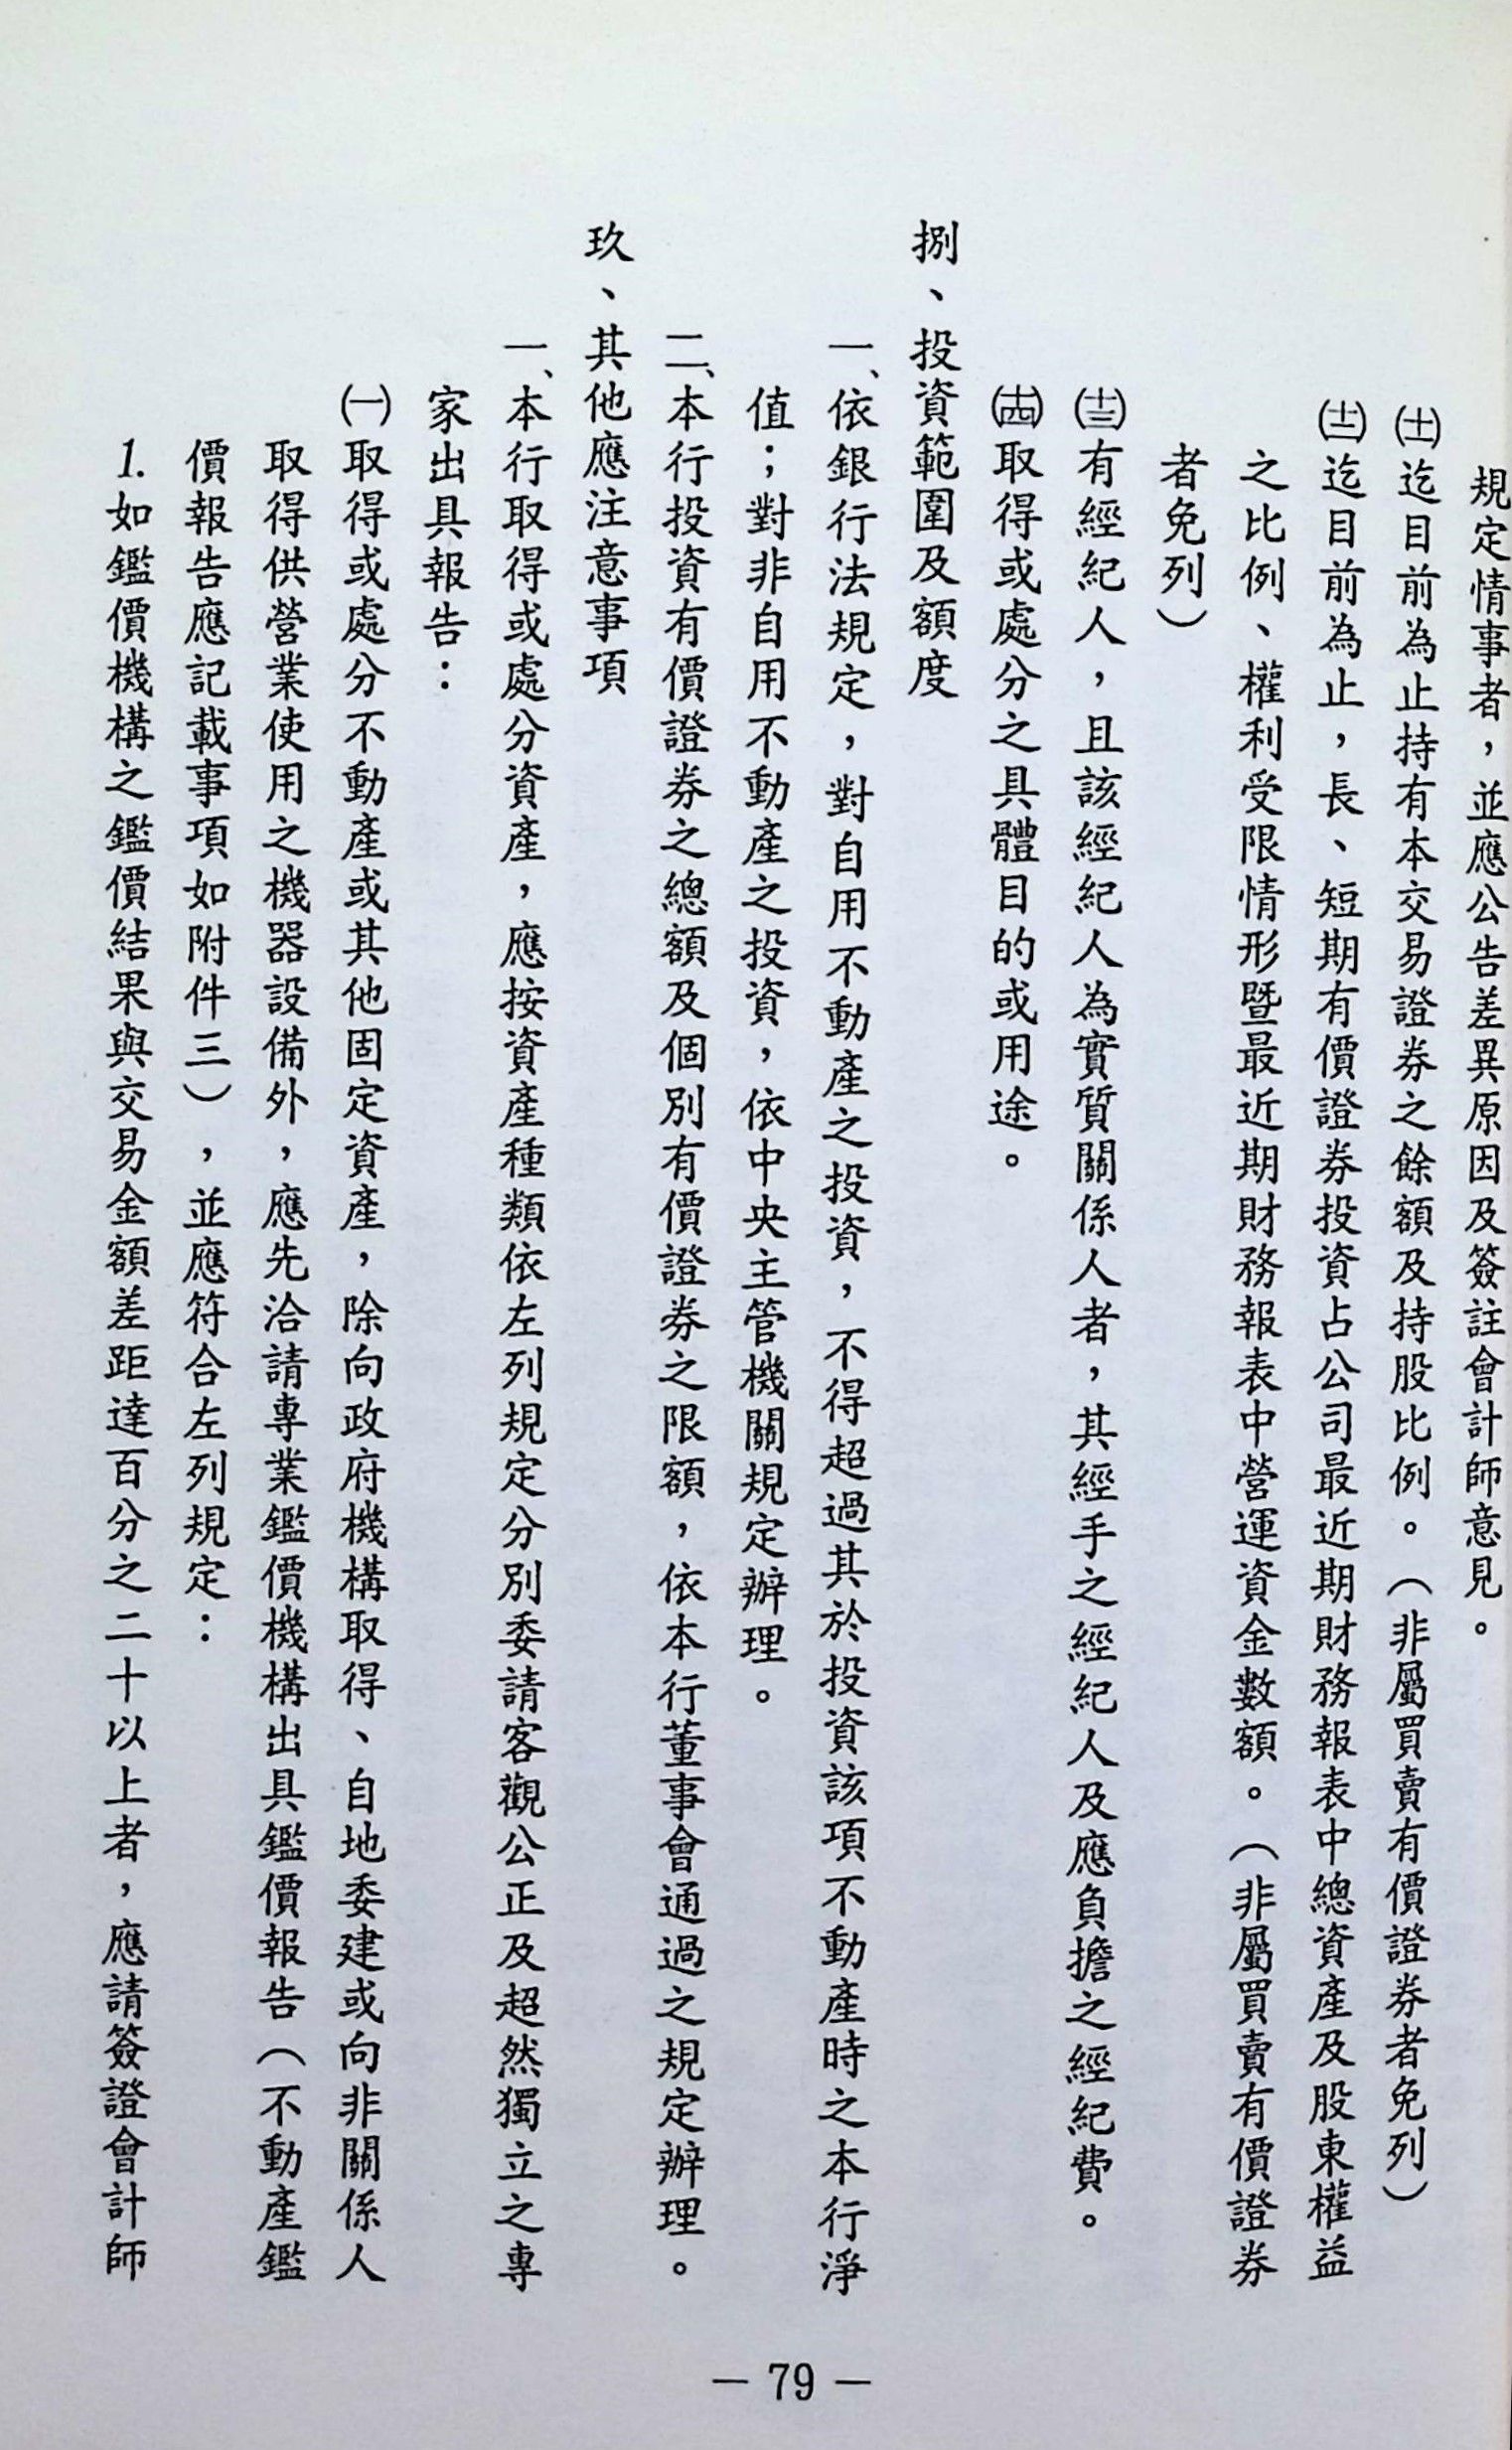 規定情事者，並應公告差異原因及簽註會計師意見。
(十一)迄目前為止持有本交易證券之餘額及持股比例。（非屬買賣有價證券者免列）
(十二)迄目前為止，長、短期有價證券投資占公司最近期財務報表中總資產及股東權益
之比例、權利受限情形暨最近期財務報表中營運資金數額。（非屬買賣有價證券
者免列）
(十三)有經紀人，且該經紀人為實質關係人者，其經手之經紀人及應負擔之經紀費。
(十四)取得或處分之具體目的或用途。
捌、投資範圍及額度
一、依銀行法規定，對自用不動產之投資，不得超過其於投資該項不動產時之本行淨
值；對非自用不動產之投資，依中央主管機關規定辦理。
二、本行投資有價證券之總額及個別有價證券之限額，依本行董事會通過之規定辦理。
玖、其他應注意事項
一、本行取得或處分資產，應按資產種類依左列規定分別委請客觀公正及超然獨立之專
家出具報告：
㈠取得或處分不動產或其他固定資產，除向政府機構取得、自地委建或向非關係人
取得供營業使用之機器設備外，應先洽請專業鑑價機構出具鑑價報告（不動產鑑
價報告應記載事項如附件三），並應符合左列規定：
1.如鑑價機構之鑑價結果與交易金額差距達百分之二十以上者，應請簽證會計師
— 79 —